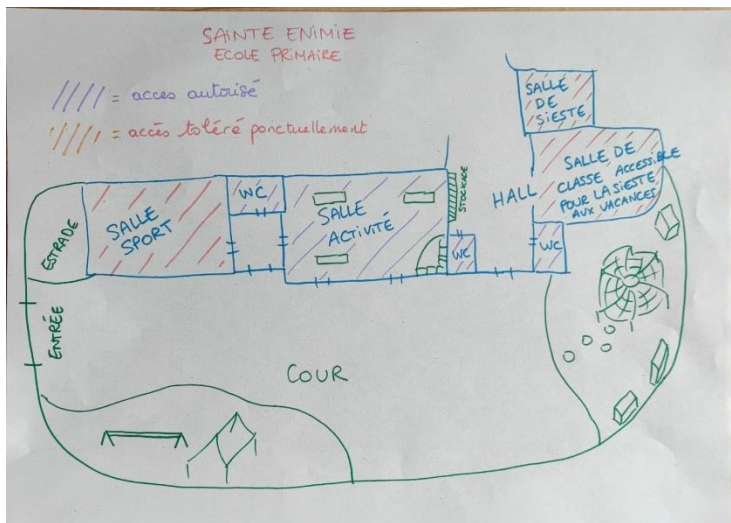 SAINTE ENIMIE
ECOLE PRIMAIRE
= acces autorisé
= accès toléré ponctuellement
SALLE
DE
SIESTE
SALLE DE
CLASSE ACCESSIBLE
POUR LA SIESTE
AUX VACANCES
HALL
STOCKAGE
WC
SALLE
SPORT
SALLE
ACTIVITÉ
WC
WC
ESTRADE
ENTRÉE
COUR